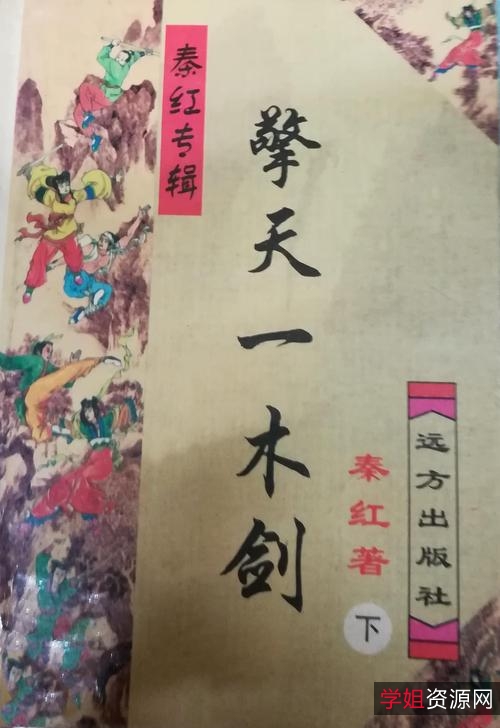 秦红专辑
擎天一木剑
秦红著
下
远方出版社
学姐资源网